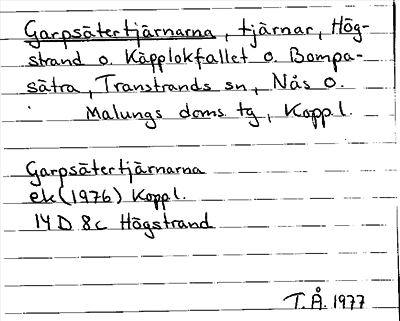 Garpsätertjärnarna, tjärnar, Hög-
strand o. Käpplokfallet o. Bompa-
sätra, Transtrands sn, Nås o.
Malungs doms tg, Koppl.
Garpsätertjärnarna
ek (1976) Koppl.
14 D 8c Högstrand
T.Å. 1977